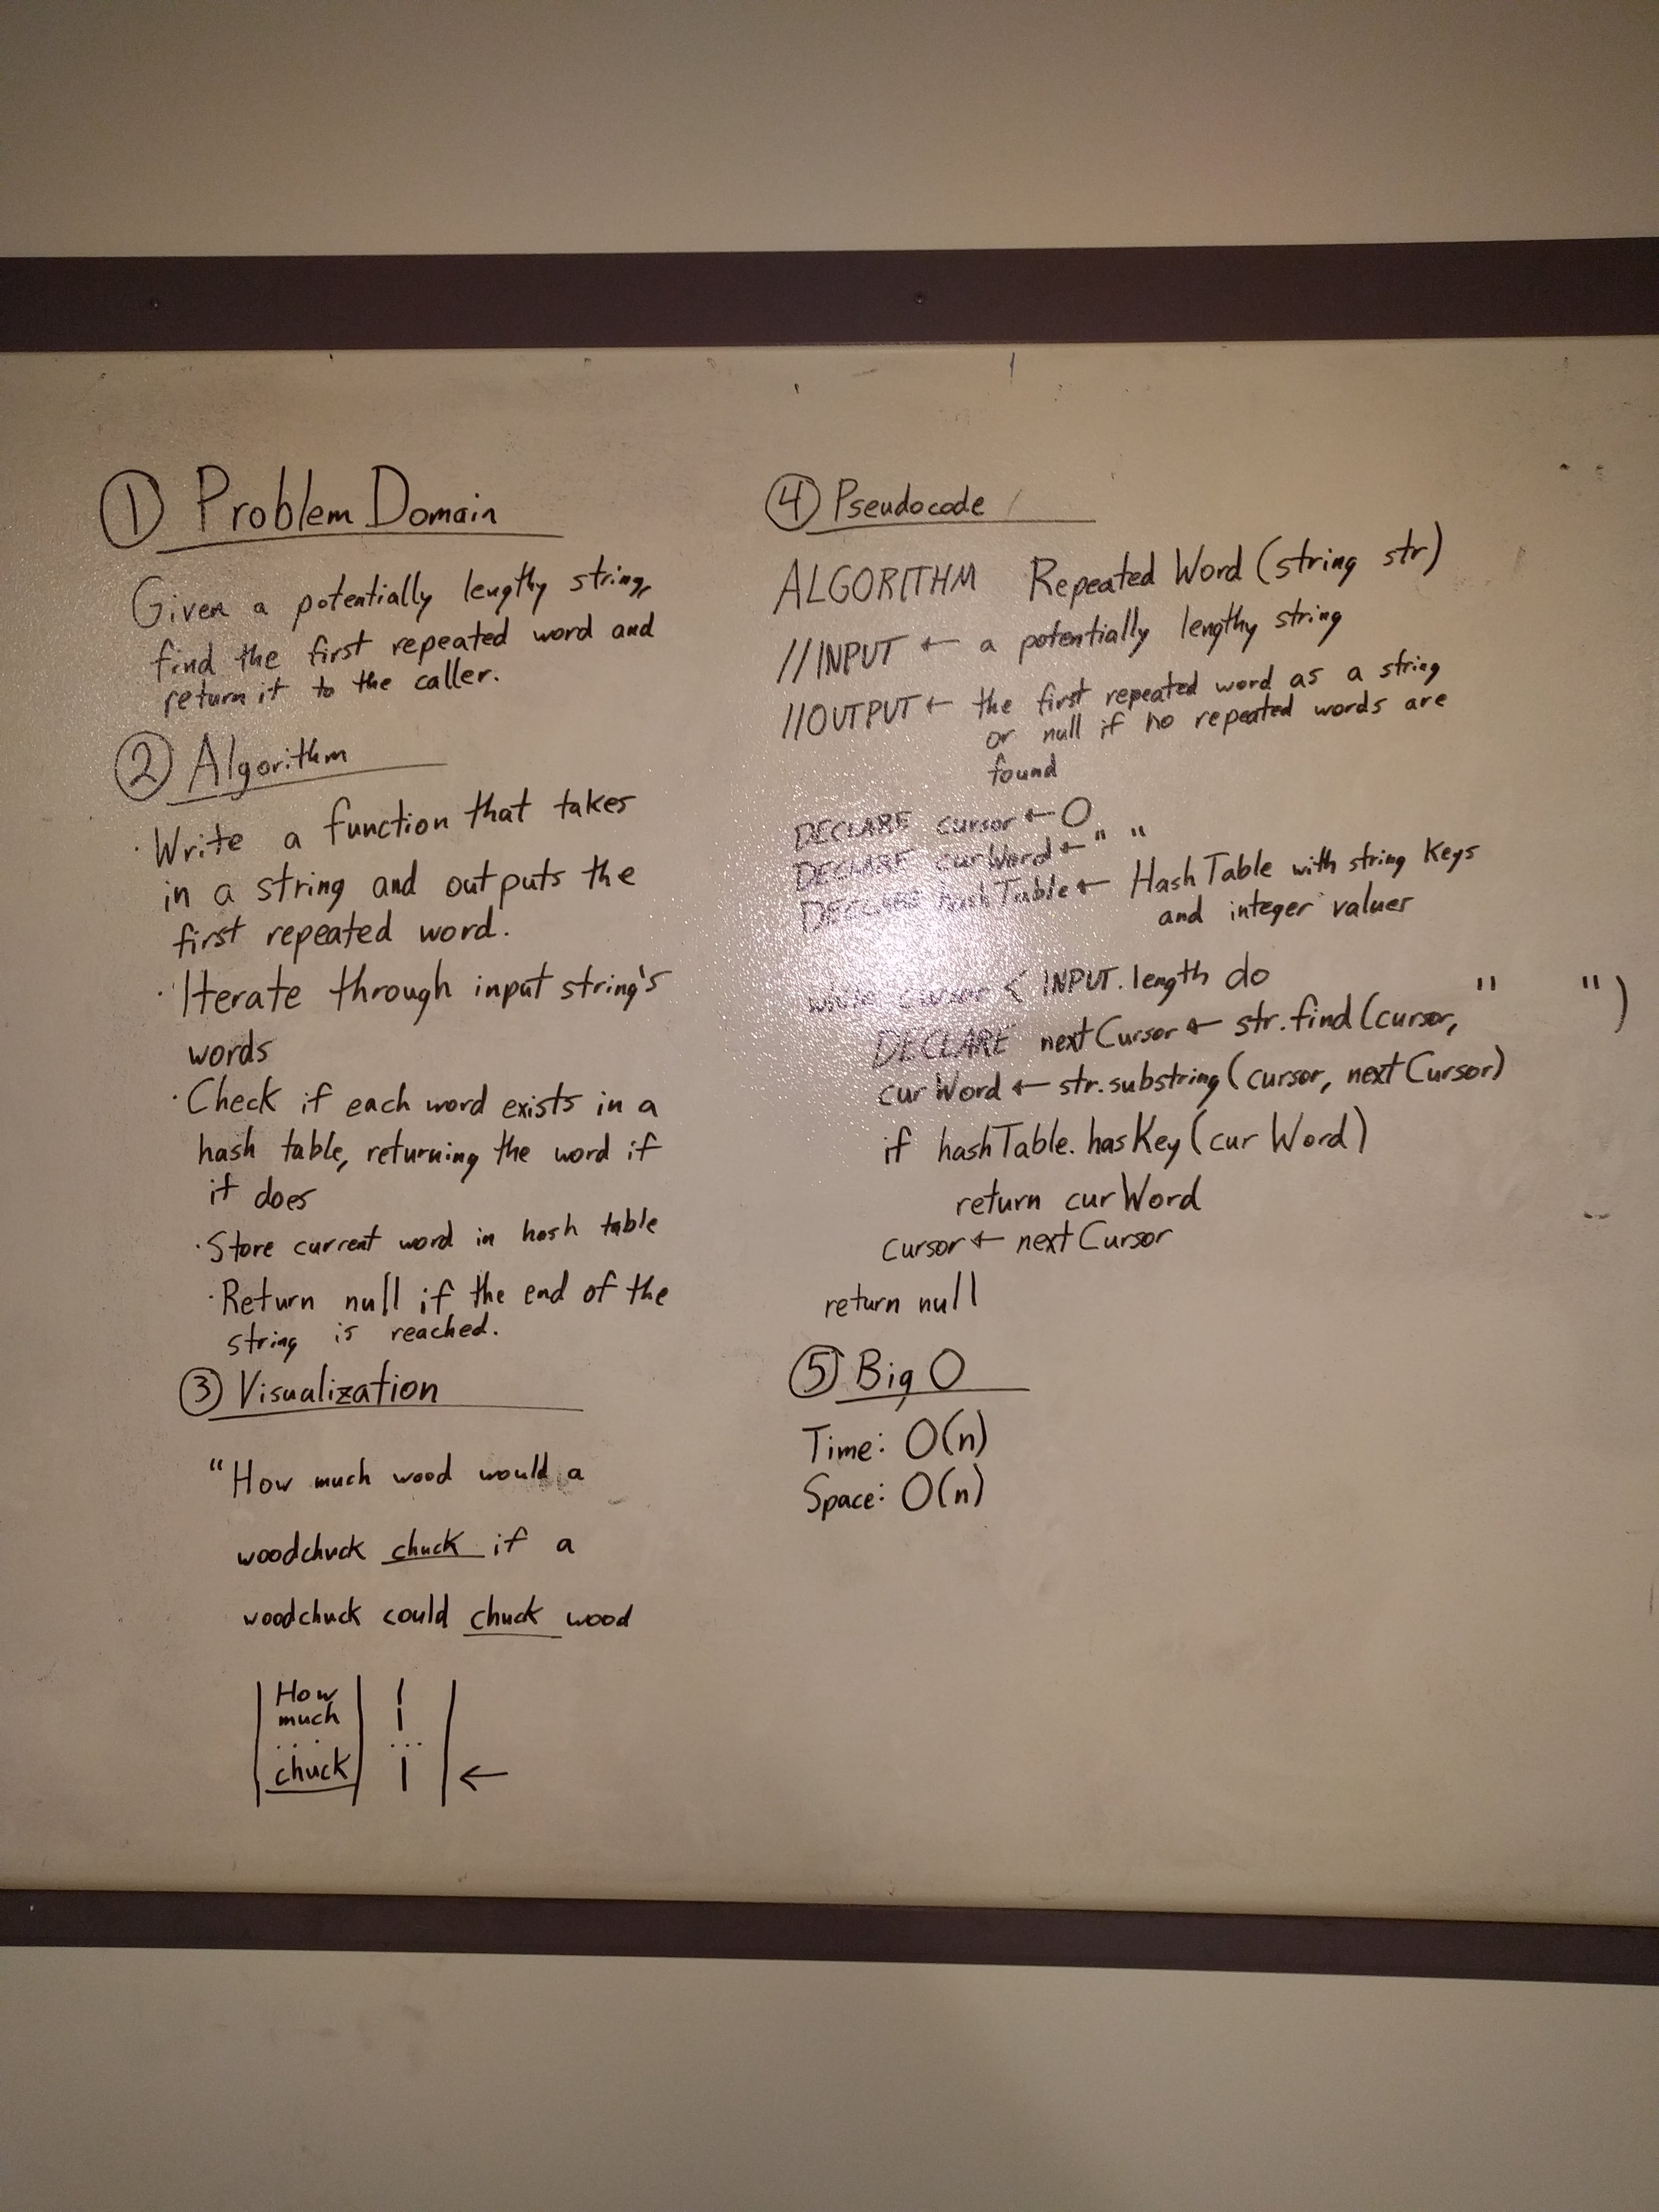 ① Problem Domain
Given a potentially lengthy string,
find the first repeated word and
return it to the caller.
② Algorithm
· Write a function that takes
in a string and outputs the
first repeated word.
· Iterate through input string's
words
· Check if each word exists in a
hash table, returning the word if
it does
· Store current word in hash table
· Return null if the end of the
string is reached.
③ Visualization
"How much wood would a
woodchuck chuck if a
woodchuck could chuck wood
How 1
much 1
... ...
chuck 1 ←
④ Pseudocode
ALGORITHM Repeated Word (string str)
//INPUT ← a potentially lengthy string
//OUTPUT ← the first repeated word as a string
or null if no repeated words are
found
DECLARE cursor ← 0
DECLARE curWord ← " "
DECLARE hashTable ← HashTable with string keys
and integer values
while cursor < INPUT.length do
DECLARE nextCursor ← str.find(cursor, " ")
curWord ← str.substring(cursor, nextCursor)
if hashTable.hasKey(curWord)
return curWord
cursor ← nextCursor
return null
⑤ Big O
Time: O(n)
Space: O(n)